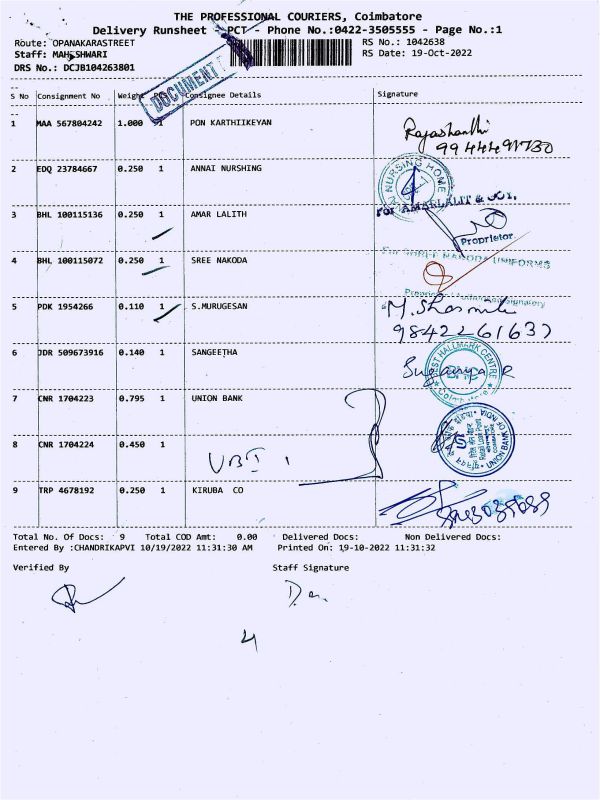 THE PROFESSIONAL COURIERS, Coimbatore
Delivery Runsheet - PCT - Phone No.:0422-3505555 - Page No.:1
Route: OPANAKARASTREET RS No.: 1042638
Staff: MAHESHWARI RS Date: 19-Oct-2022
DRS No.: DCJB104263801
DOCUMENT
S No Consignment No Weight Consignee Details Signature
1 MAA 567804242 1.000 1 PON KARTHIIKEYAN
Rajashanthi
2 EDQ 23784667 0.250 1 ANNAI NURSHING
NURSING HOME
3 BHL 100115136 0.250 1 AMAR LALITH
For AMARLALIT & JOY.
Proprietor.
4 BHL 100115072 0.250 1 SREE NAKODA
For SHREE NAKODA UNIFORMS
5 PDK 1954266 0.110 1 S.MURUGESAN
9842261637
6 JDR 509673916 0.140 1 SANGEETHA
HALLMARK CENTRE
Coimbatore
7 CNR 1704223 0.795 1 UNION BANK
8 CNR 1704224 0.450 1
UBI
UNION BANK OF INDIA
9 TRP 4678192 0.250 1 KIRUBA CO
Total No. Of Docs: 9 Total COD Amt: 0.00 Delivered Docs: Non Delivered Docs:
Entered By :CHANDRIKAPVI 10/19/2022 11:31:30 AM Printed On: 19-10-2022 11:31:32
Verified By Staff Signature
4